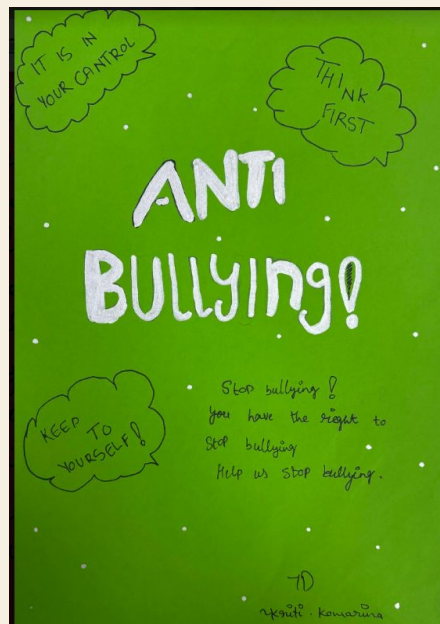 IT IS IN
YOUR CANTROL
THINK
FIRST
ANTI
BULLyING!
KEEP TO
YOURSELF!
Stop bullying!
you have the right to
Stop bullying
Help us stop bullying.
7D